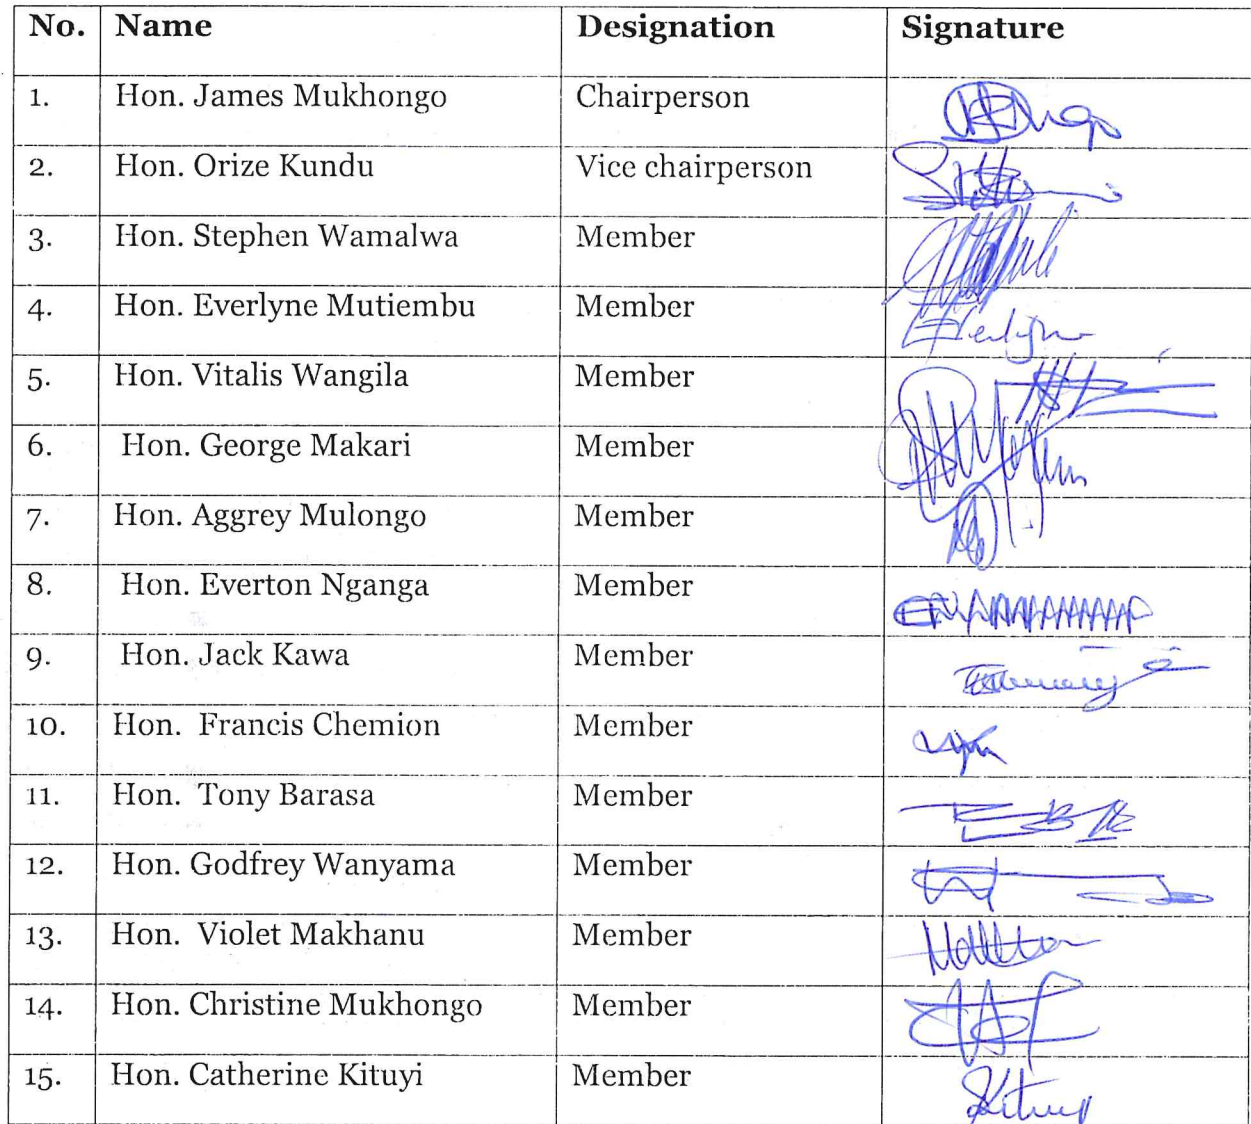 No. Name Designation Signature
1. Hon. James Mukhongo Chairperson
2. Hon. Orize Kundu Vice chairperson
3. Hon. Stephen Wamalwa Member
4. Hon. Everlyne Mutiembu Member
5. Hon. Vitalis Wangila Member
6. Hon. George Makari Member
7. Hon. Aggrey Mulongo Member
8. Hon. Everton Nganga Member
9. Hon. Jack Kawa Member
10. Hon. Francis Chemion Member
11. Hon. Tony Barasa Member
12. Hon. Godfrey Wanyama Member
13. Hon. Violet Makhanu Member
14. Hon. Christine Mukhongo Member
15. Hon. Catherine Kituyi Member